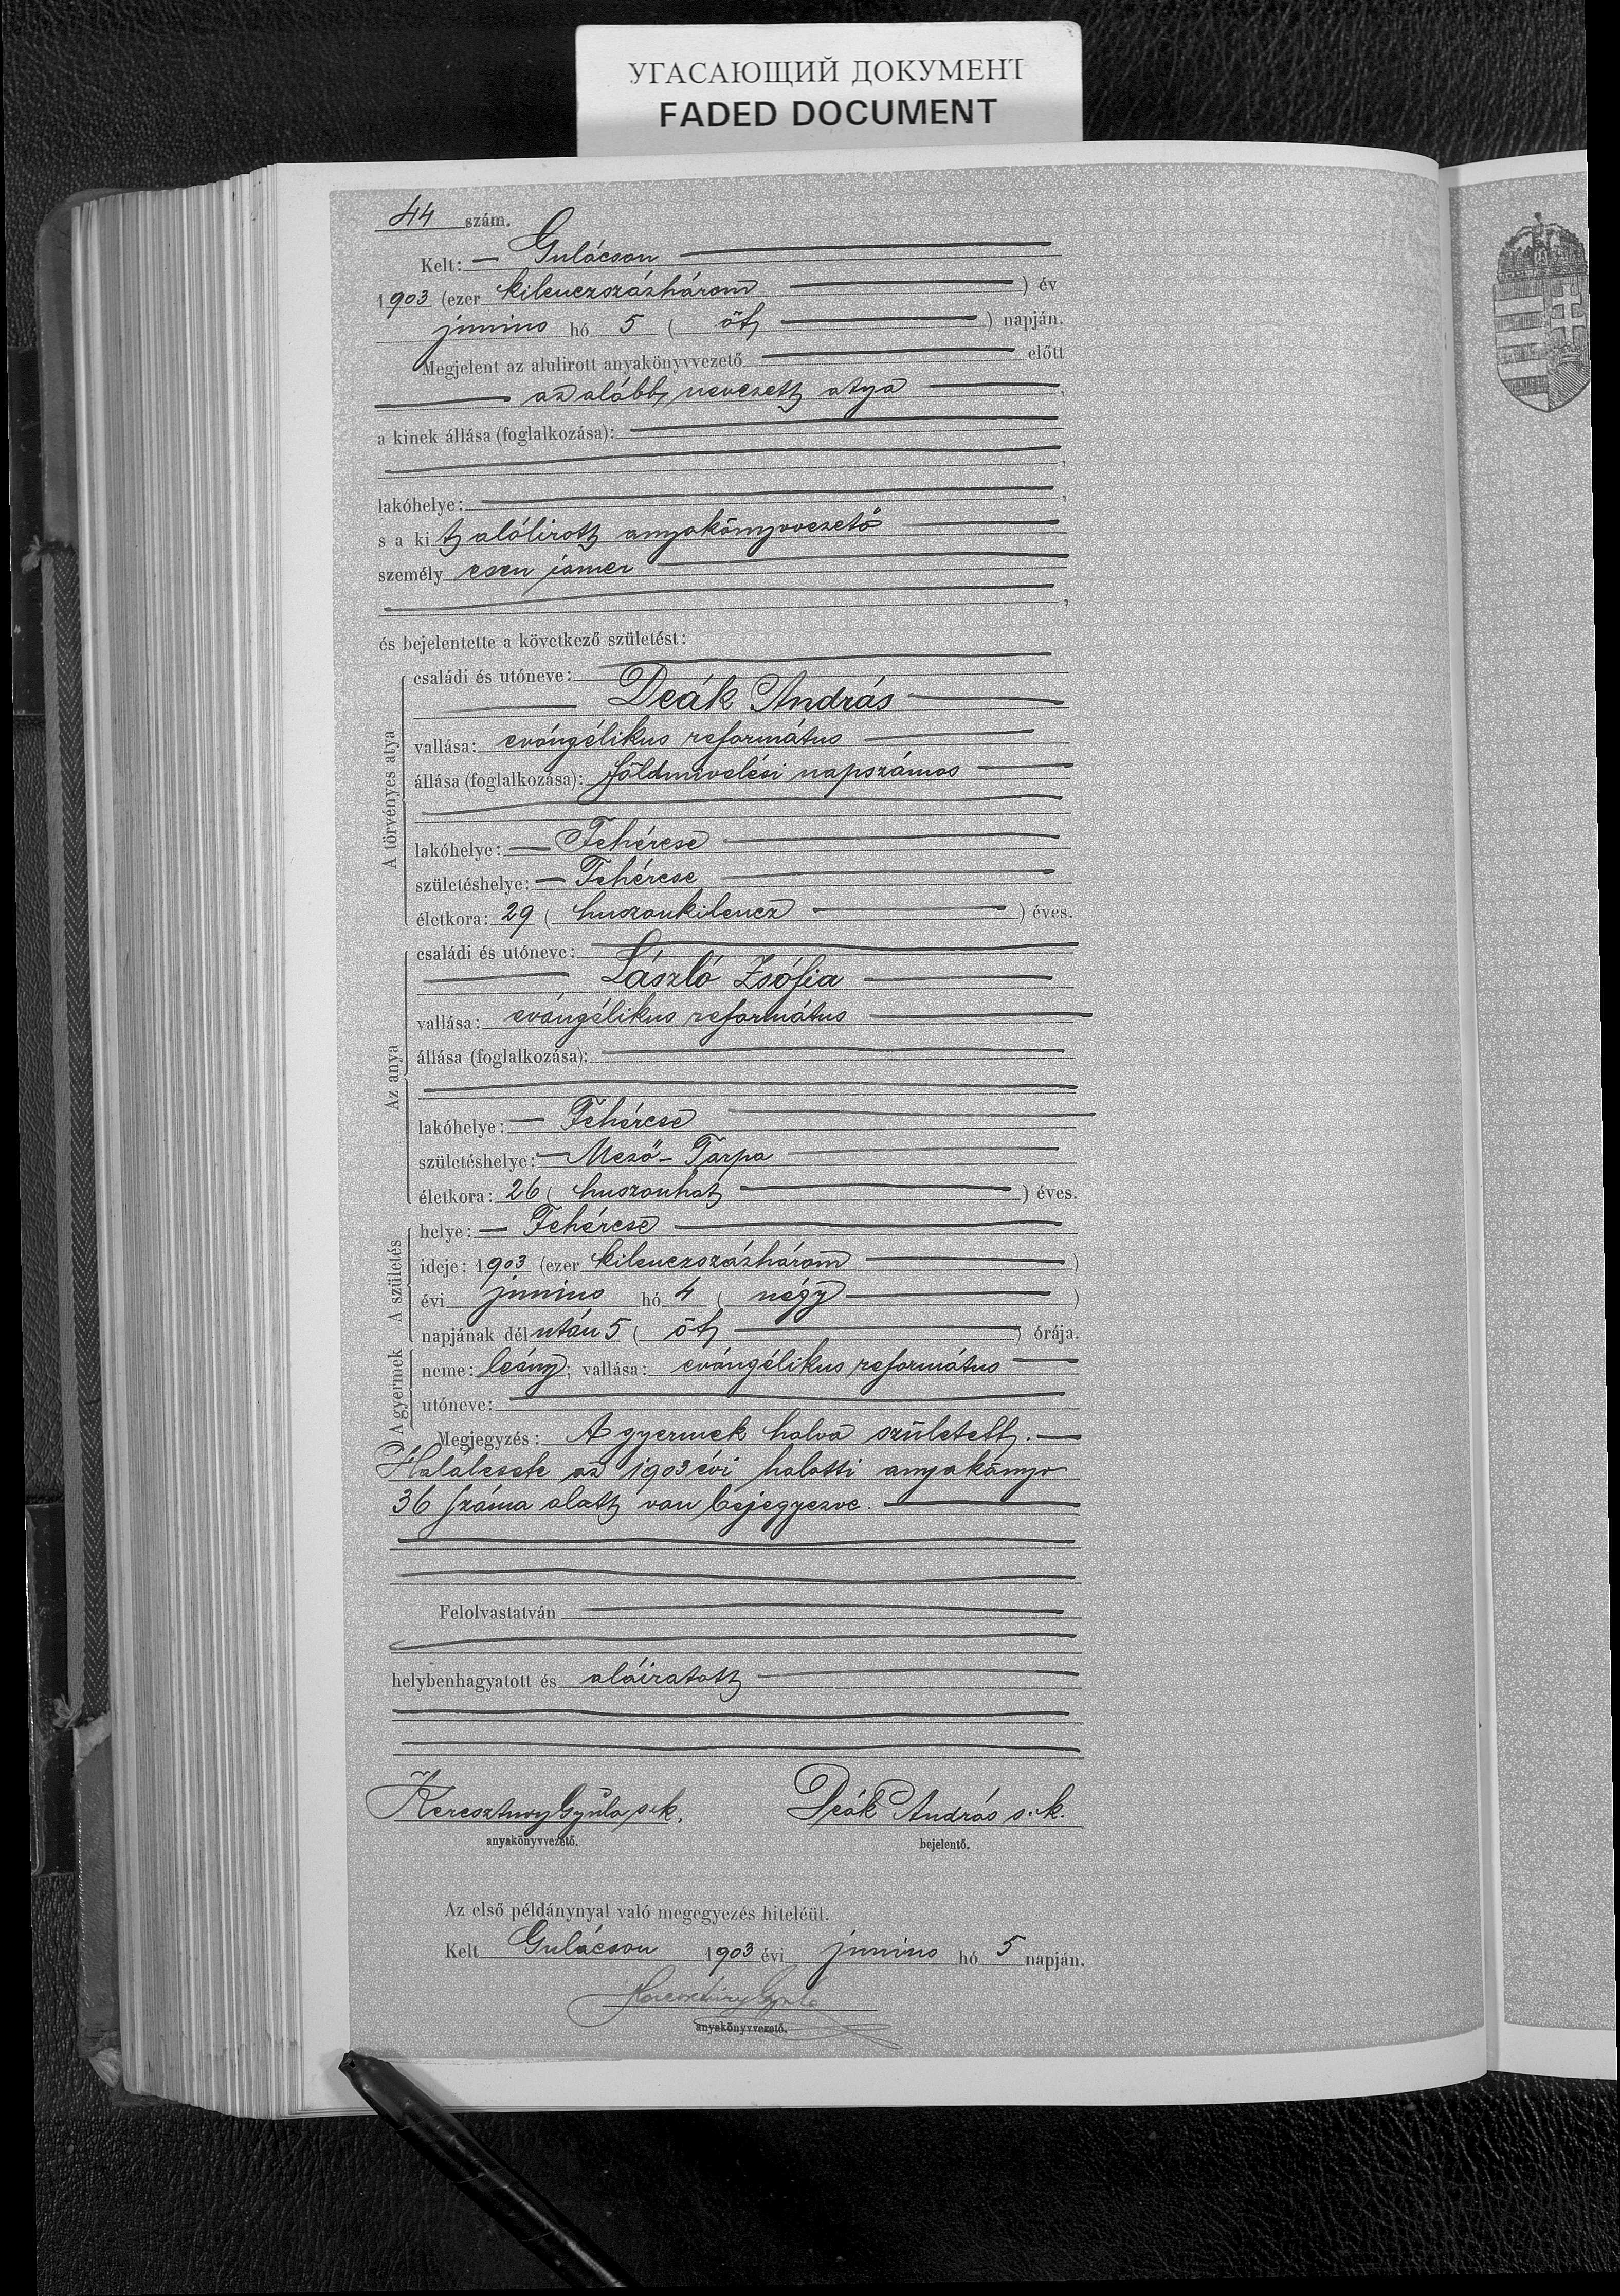 УГАСАЮЩИЙ ДОКУМЕНТ
FADED DOCUMENT
44 szám.
Kelt: Gulácson
1903 (ezer kilenczszázhárom ) év
junius hó 5 ( öt ) napján.
Megjelent az alulirott anyakönyvvezető előtt
az alább nevezett atya ,
a kinek állása (foglalkozása):
,
lakóhelye: ,
s a kit alólirott anyakönyvvezető
személyesen ismer
,
és bejelentette a következő születést:
A törvényes atya
családi és utóneve:
Deák András
vallása: evángélikus református
állása (foglalkozása): földmivelési napszámos
lakóhelye: Fehércse
születéshelye: Fehércse
életkora: 29 ( huszonkilencz ) éves.
Az anya
családi és utóneve:
László Zsófia
vallása: evángélikus református
állása (foglalkozása):
lakóhelye: Fehércse
születéshelye: Mező-Tarpa
életkora: 26 ( huszonhat ) éves.
A születés
helye: Fehércse
ideje: 1903 (ezer kilenczszázhárom )
évi junius hó 4 ( négy )
napjának délután 5 ( öt ) órája.
A gyermek
neme: leány; vallása: evángélikus református
utóneve:
Megjegyzés: A gyermek halva született.
Halálesete az 1903 évi halotti anyakönyv
36 száma alatt van bejegyezve.
Felolvastatván
helybenhagyatott és aláiratott
Keresztury Gyula s.k. Deák András s.k.
anyakönyvvezető. bejelentő.
Az első példánynyal való megegyezés hiteléül.
Kelt Gulácson 1903 évi junius hó 5 napján.
Keresztury Gyula
anyakönyvvezető.